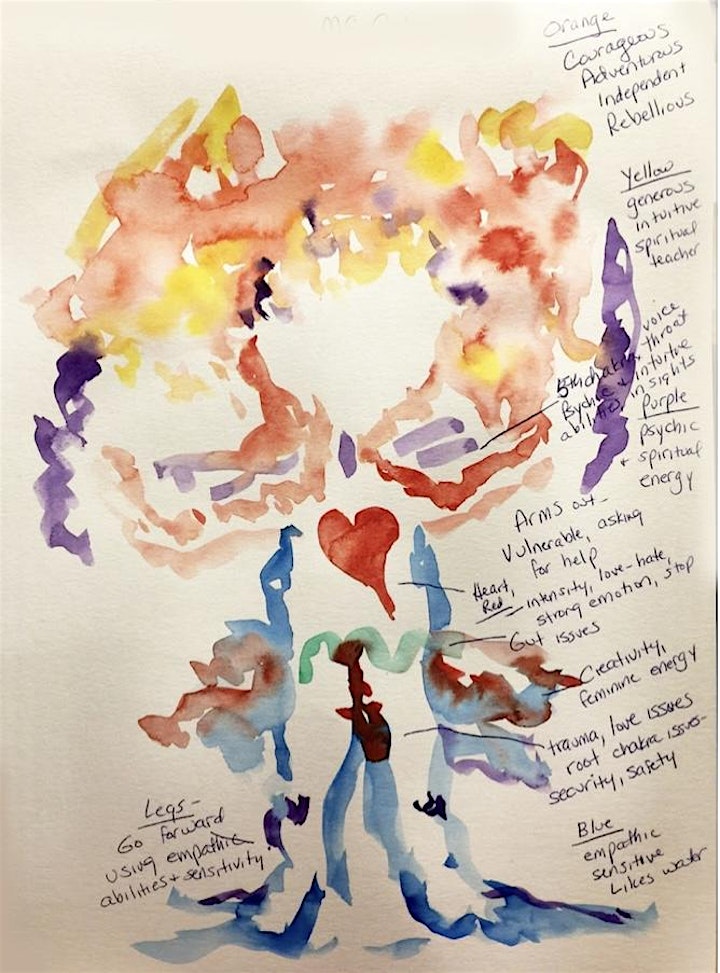 Orange
Courageous
Adventurous
Independent
Rebellious
Yellow
generous
intuitive
spiritual
teacher
5th chakra, voice
throat
Psychic & intuitive
abilities, insights
Purple
psychic
+ spiritual
energy
Arms out-
Vulnerable, asking
for help
Heart,
Red - intensity, love-hate,
strong emotion, stop
Gut issues
Creativity,
feminine energy
trauma, love issues
root chakra issues-
security, safety
Legs-
Go forward
using empathic
abilities + sensitivity
Blue
empathic
sensitive
Likes water